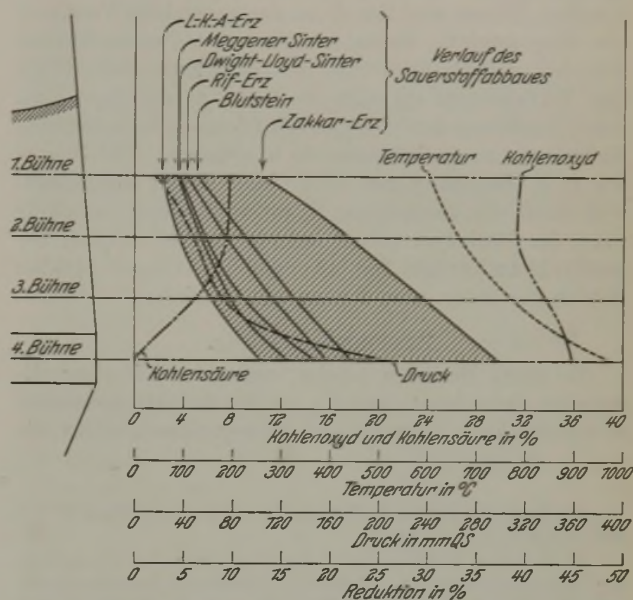 L.-K.-A-Erz
Meggener Sinter
Dwight-Lloyd-Sinter
Rif-Erz
Blutstein
Zakkar-Erz
Verlauf des
Sauerstoffabbaues
1. Bühne
2. Bühne
3. Bühne
4. Bühne
Temperatur
Kohlenoxyd
Kohlensäure
Druck
0 4 8 12 16 20 24 28 32 36 40
Kohlenoxyd und Kohlensäure in %
0 100 200 300 400 500 600 700 800 900 1000
Temperatur in °C
0 40 80 120 160 200 240 280 320 360 400
Druck in mm QS
0 5 10 15 20 25 30 35 40 45 50
Reduktion in %